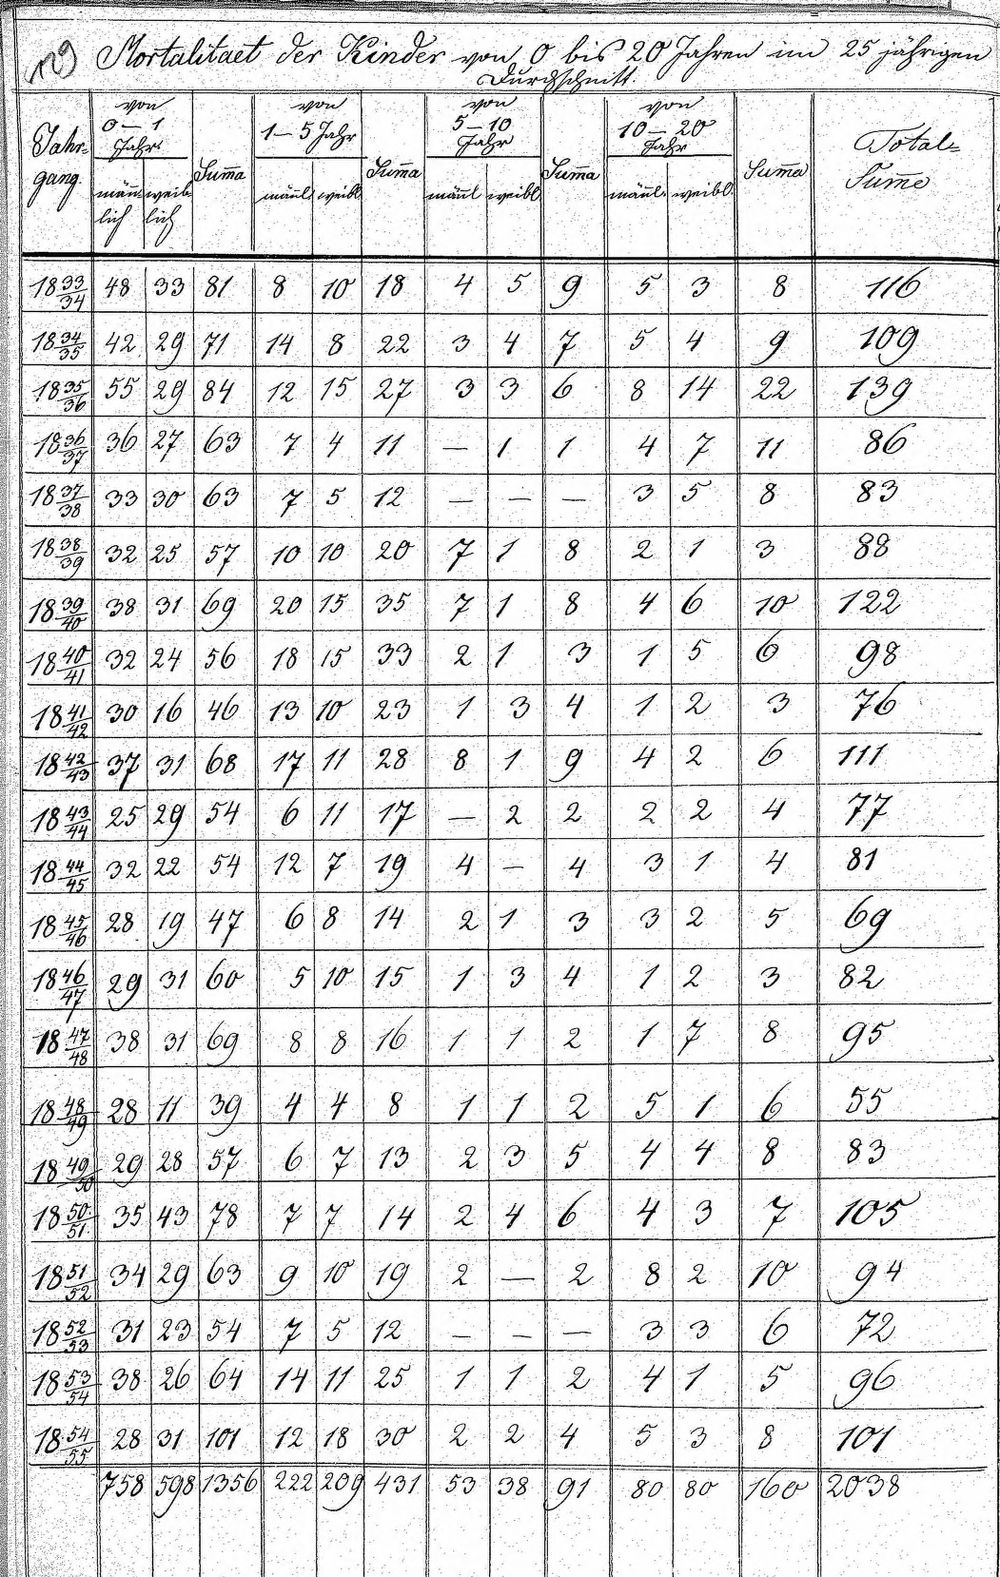 Mortalitaet der Kinder von 0 bis 20 Jahren im 25 jährigen
Durchschnitt.
Jahr=gang. | von 0–1 Jahr: | Sum̄a | von 1–5 Jahr | Sum̄a | von 5–10 Jahr | Sum̄a | von 10–20 Jahr | Sum̄a | Total=Sum̄e
män̄lich weiblich | män̄l. weibl. | män̄l weibl. | män̄l. weibl.
18 33/34 48 33 81 8 10 18 4 5 9 5 3 8 116
18 34/35 42 29 71 14 8 22 3 4 7 5 4 9 109
18 35/36 55 29 84 12 15 27 3 3 6 8 14 22 139
18 36/37 36 27 63 7 4 11 — 1 1 4 7 11 86
18 37/38 33 30 63 7 5 12 — — — 3 5 8 83
18 38/39 32 25 57 10 10 20 7 1 8 2 1 3 88
18 39/40 38 31 69 20 15 35 7 1 8 4 6 10 122
18 40/41 32 24 56 18 15 33 2 1 3 1 5 6 98
18 41/42 30 16 46 13 10 23 1 3 4 1 2 3 76
18 42/43 37 31 68 17 11 28 8 1 9 4 2 6 111
18 43/44 25 29 54 6 11 17 — 2 2 2 2 4 77
18 44/45 32 22 54 12 7 19 4 — 4 3 1 4 81
18 45/46 28 19 47 6 8 14 2 1 3 3 2 5 69
18 46/47 29 31 60 5 10 15 1 3 4 1 2 3 82
18 47/48 38 31 69 8 8 16 1 1 2 1 7 8 95
18 48/49 28 11 39 4 4 8 1 1 2 5 1 6 55
18 49/50 29 28 57 6 7 13 2 3 5 4 4 8 83
18 50/51 35 43 78 7 7 14 2 4 6 4 3 7 105
18 51/52 34 29 63 9 10 19 2 — 2 8 2 10 94
18 52/53 31 23 54 7 5 12 — — — 3 3 6 72
18 53/54 38 26 64 14 11 25 1 1 2 4 1 5 96
18 54/55 28 31 101 12 18 30 2 2 4 5 3 8 101
758 598 1356 222 209 431 53 38 91 80 80 160 2038